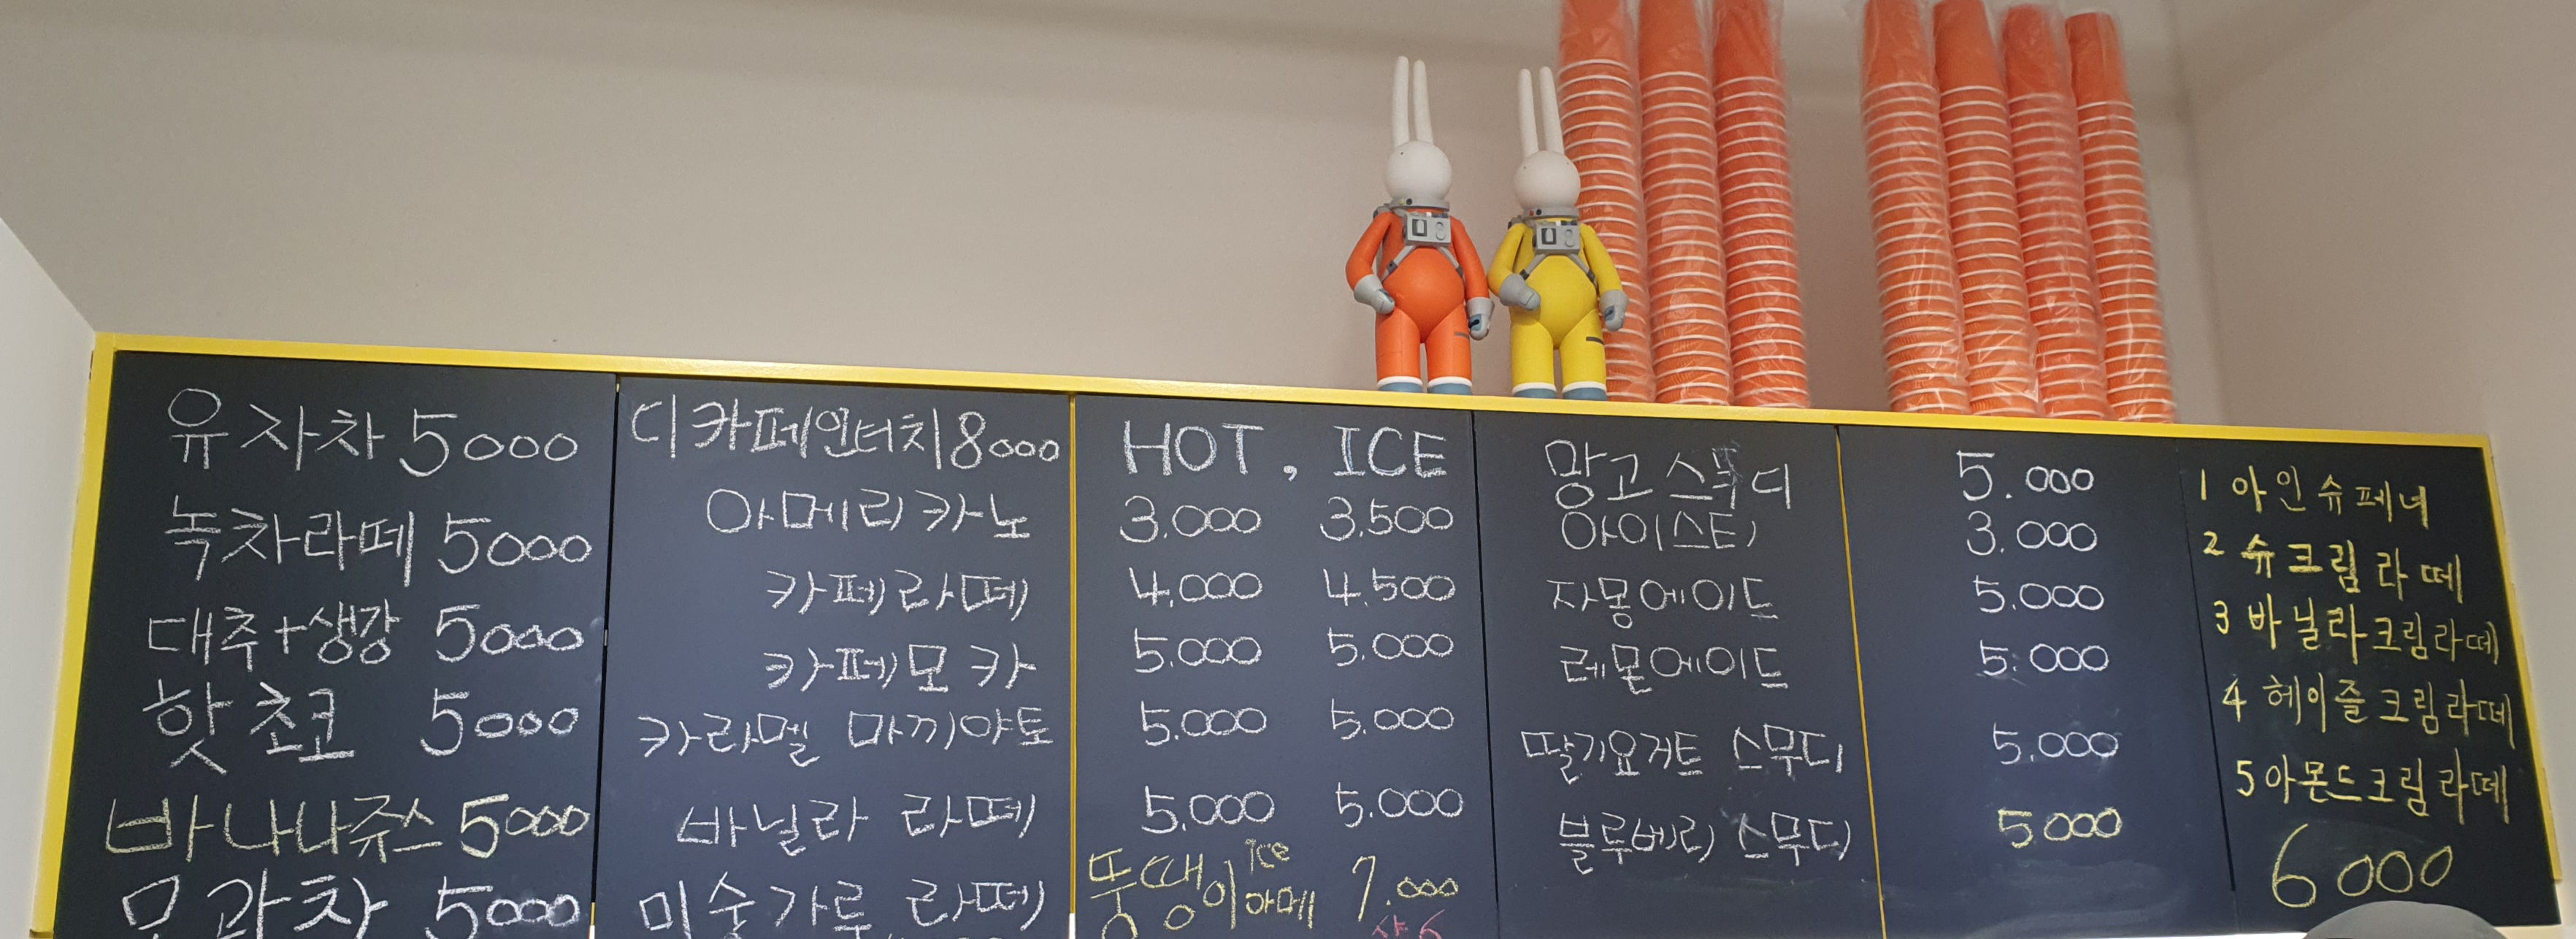 유자차 5000
녹차라떼 5000
대추+생강 5000
핫초코 5000
바나나쥬스 5000
모과차 5000
디카페인터치 8000
아메리카노
카페라떼
카페모카
카라멜 마끼야토
바닐라 라떼
미숫가루 라떼
HOT, ICE
3.000 3.500
4.000 4.500
5.000 5.000
5.000 5.000
5.000 5.000
뚱땡이 ice 아메 7.000
망고스무디 5.000
아이스티 3.000
자몽에이드 5.000
레몬에이드 5.000
딸기요거트 스무디 5.000
블루베리 스무디 5000
1 아인슈페너
2 슈크림라떼
3 바닐라크림라떼
4 헤이즐크림라떼
5 아몬드크림라떼
6000